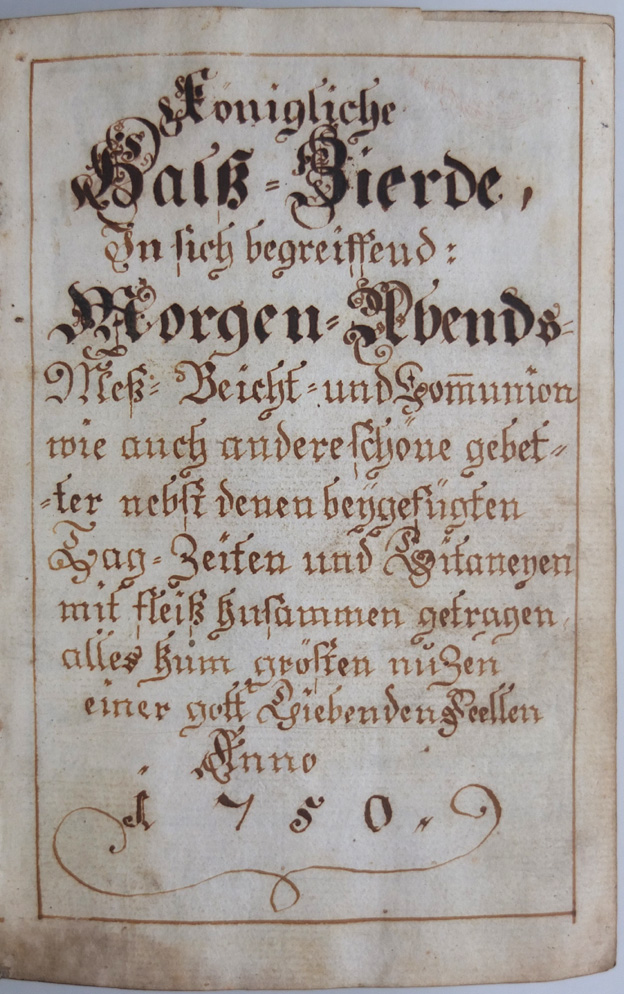 Königliche
Halß-Zierde,
In sich begreiffend:
Morgen-Abends-
Meß-Beicht-und Com̅union
wie auch andere schöne gebet-
-ter nebst denen beÿgefügten
Tag-Zeiten und Litaneyen
mit fleiß zusammen getragen,
alles zum grösten nuzen
einer gott Liebenden Seellen
Anno
1750.